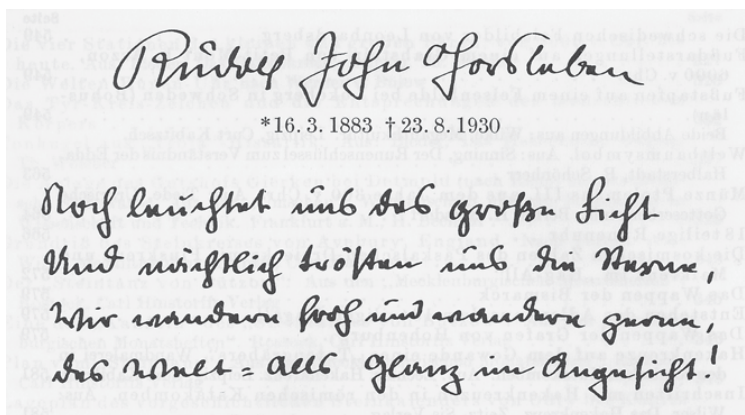 Rudolf John Gorsleben
*16. 3. 1883 †23. 8. 1930
Noch leuchtet uns das große Licht
Und nächtlich trösten uns die Sterne,
Wir wandern froh und wandern gerne,
des Welt-Alls Glanz im Angesicht.